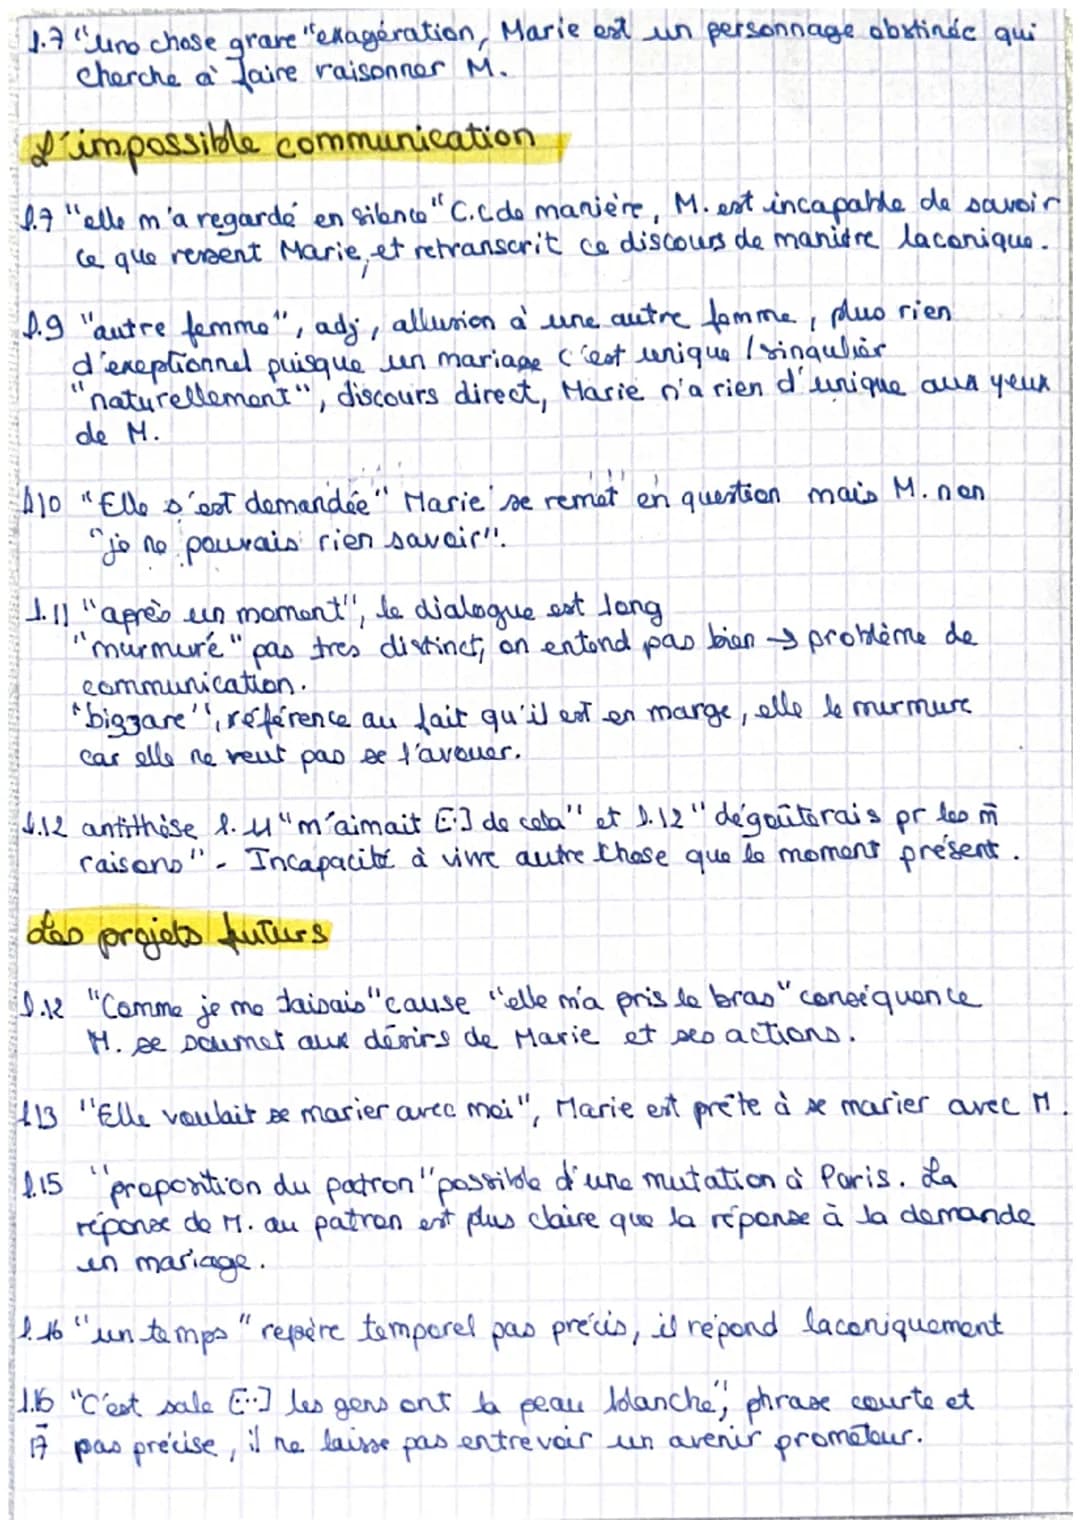 l.7 "une chose grave" exagération, Marie est un personnage obstinée qui
cherche à faire raisonner M.
L'impossible communication
l.7 "elle m'a regardé en silence" C.C de manière, M. est incapable de savoir
ce que ressent Marie, et retranscrit ce discours de manière laconique.
l.9 "autre femme", adj, allusion à une autre femme, plus rien
d'exeptionnel puisque un mariage c'est unique / singulier
"naturellement", discours direct, Marie n'a rien d'unique aux yeux
de M.
l10 "Elle s'est demandée" Marie se remet en question mais M. non
"je ne pouvais rien savoir".
l.11 "après un moment", le dialogue est long
"murmuré" pas tres distinct, on entend pas bien → problème de
communication.
"bizzare", référence au fait qu'il est en marge, elle le murmure
car elle ne veut pas se l'avouer.
l.12 antithèse l.11 "m'aimait [...] de cela" et l.12 "dégoûterais pr les m̄
raisons" - Incapacité à vivre autre chose que le moment présent.
Les projets futurs
l.12 "Comme je me taisais" cause "elle m'a pris le bras" conséquence
M. se soumet aux désirs de Marie et ses actions.
l13 "Elle voulait se marier avec moi", Marie est prête à se marier avec M.
l.15 "proposition du patron" possible d'une mutation à Paris. La
réponse de M. au patron est plus claire que la réponse à la demande
en mariage.
l.16 "un temps" repère temporel pas précis, il répond laconiquement
l.16 "C'est sale [...] les gens ont la peau blanche", phrase courte et
17 pas précise, il ne laisse pas entrevoir un avenir prometeur.